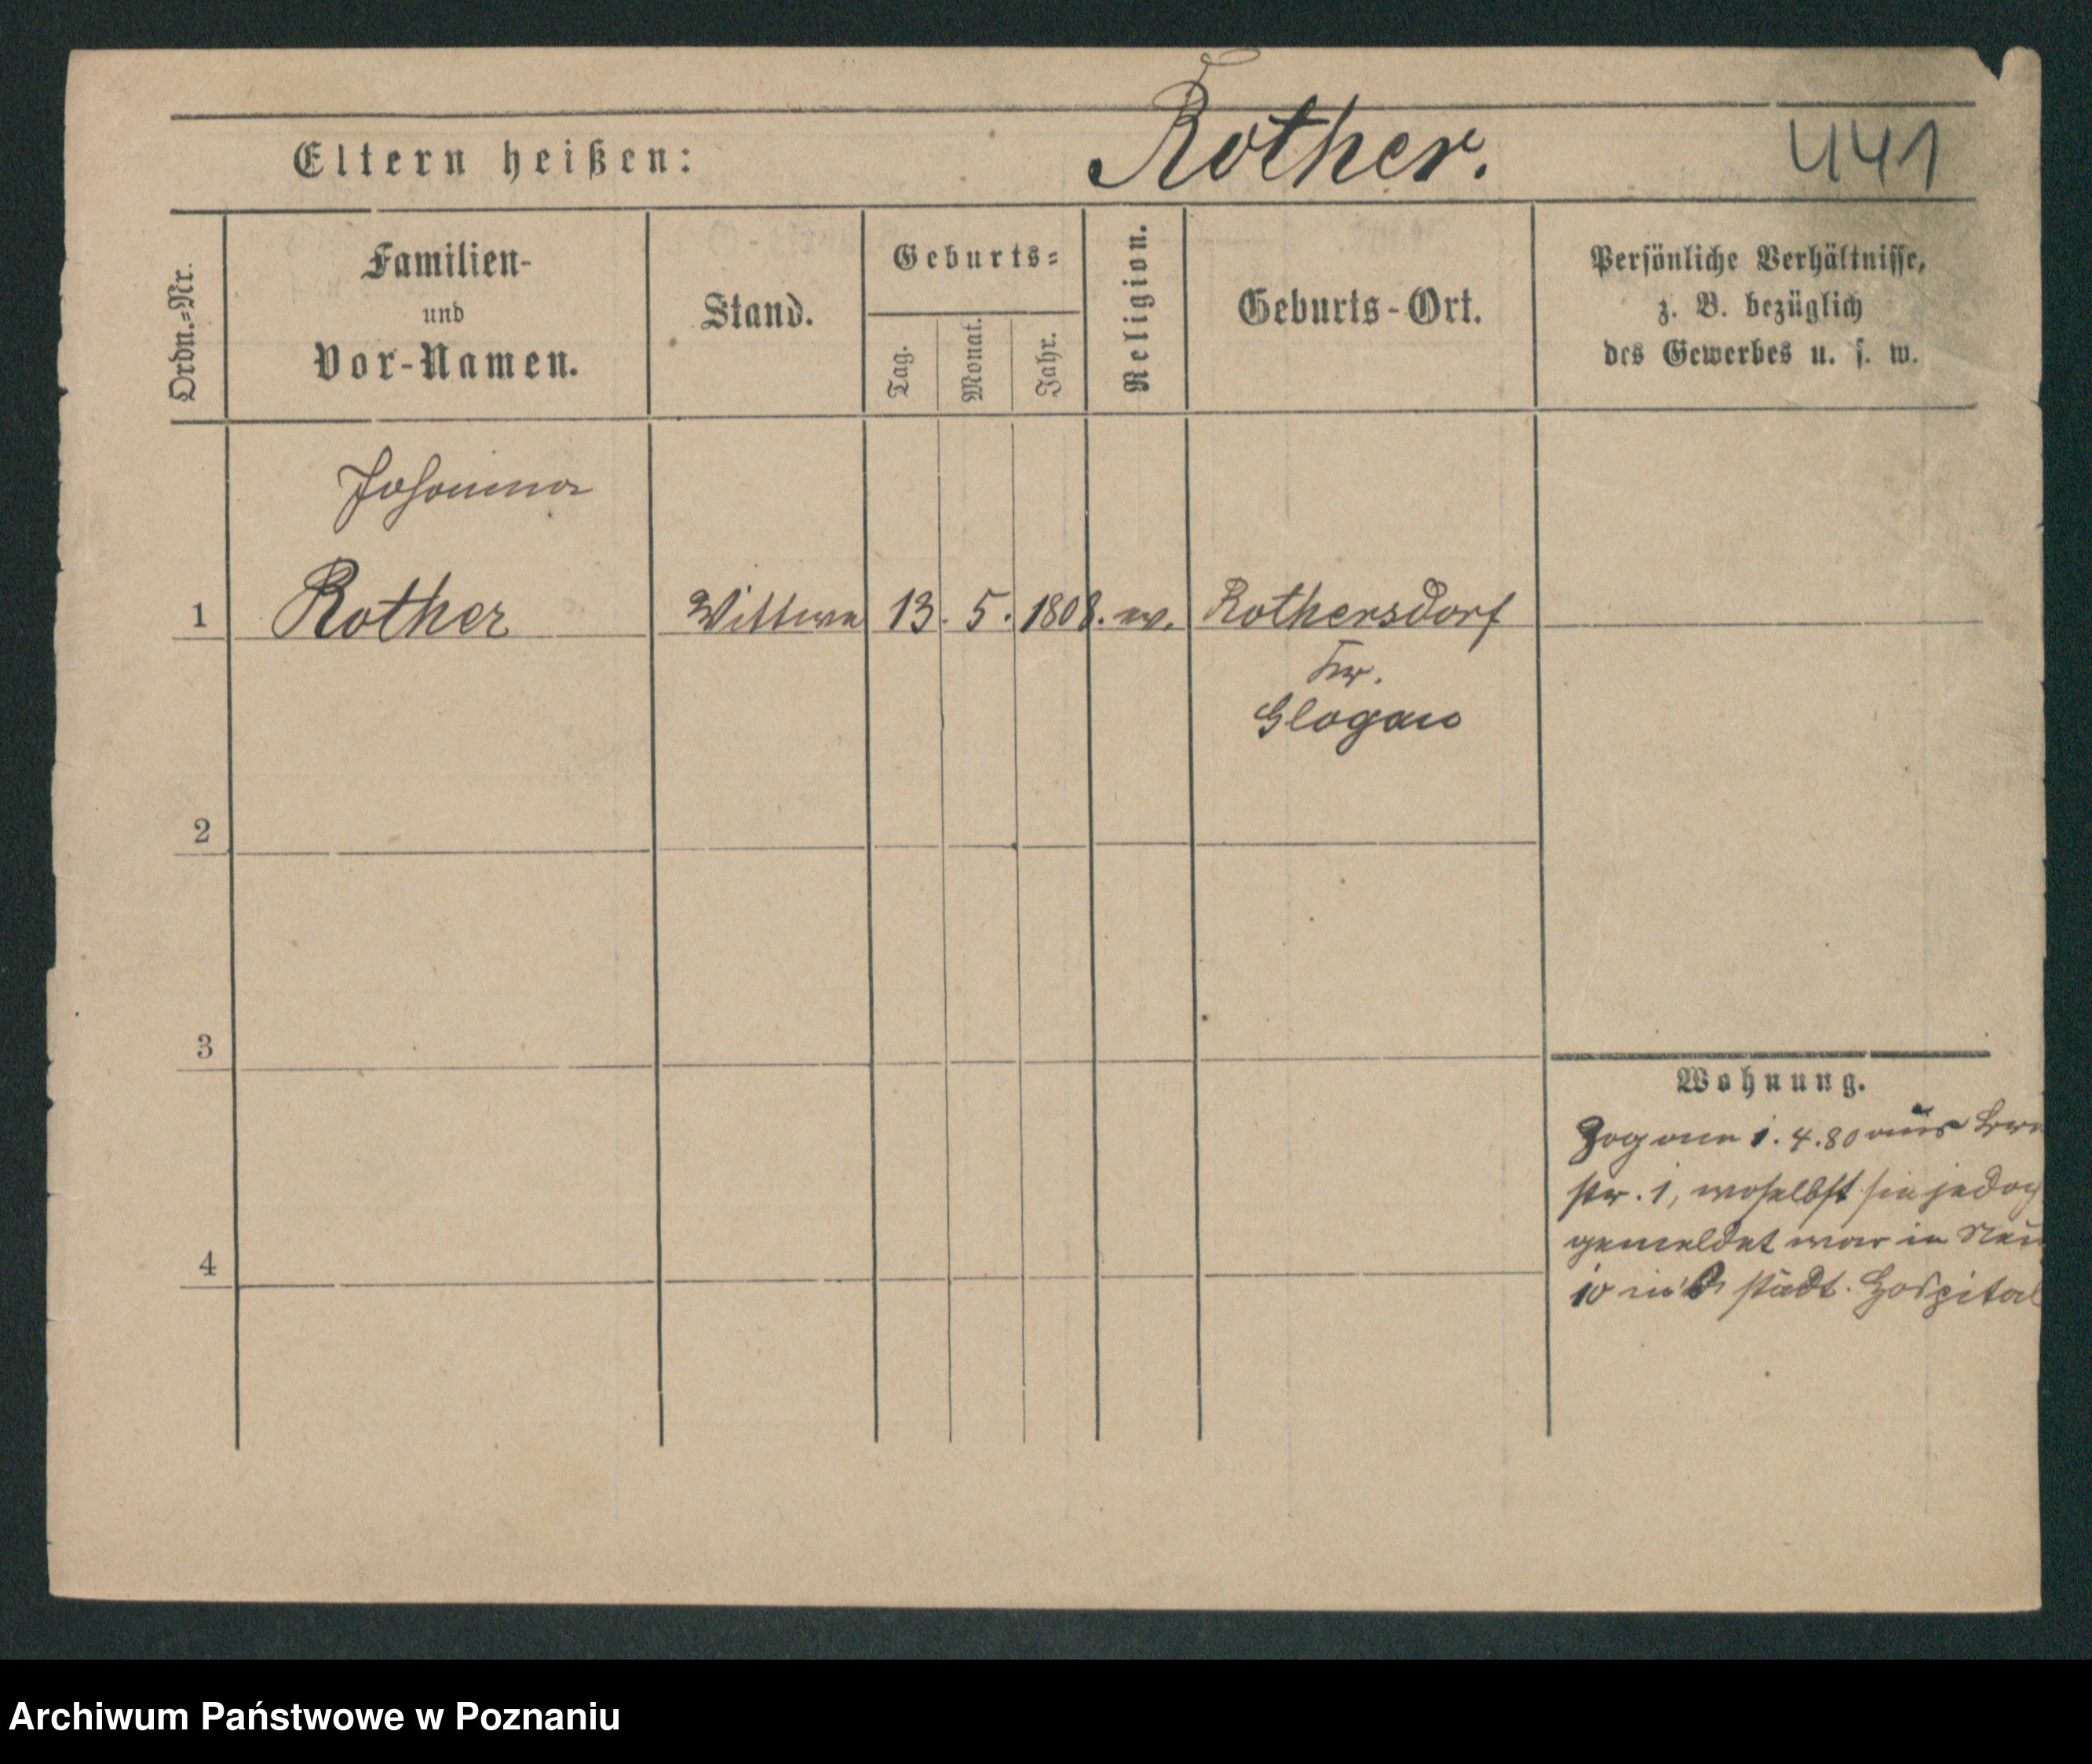 Rother.
441
Eltern heißen:
Ordn.-Nr.
Familien-
und
Vor-Namen.
Stand.
Geburts-
Tag.
Monat.
Jahr.
Religion.
Geburts-Ort.
Persönliche Verhältnisse,
z. B. bezüglich
des Gewerbes u. s. w.
Johanna
1 Rother Wittwe 13. 5. 1808. ev. Rothersdorf
Kr.
Glogau
2
3
4
Wohnung.
Zog am 1. 4. 80 aus
str. 1, woselbst sie jedoch
gemeldet war in Neu
10 in's städt. Hospital
Archiwum Państwowe w Poznaniu